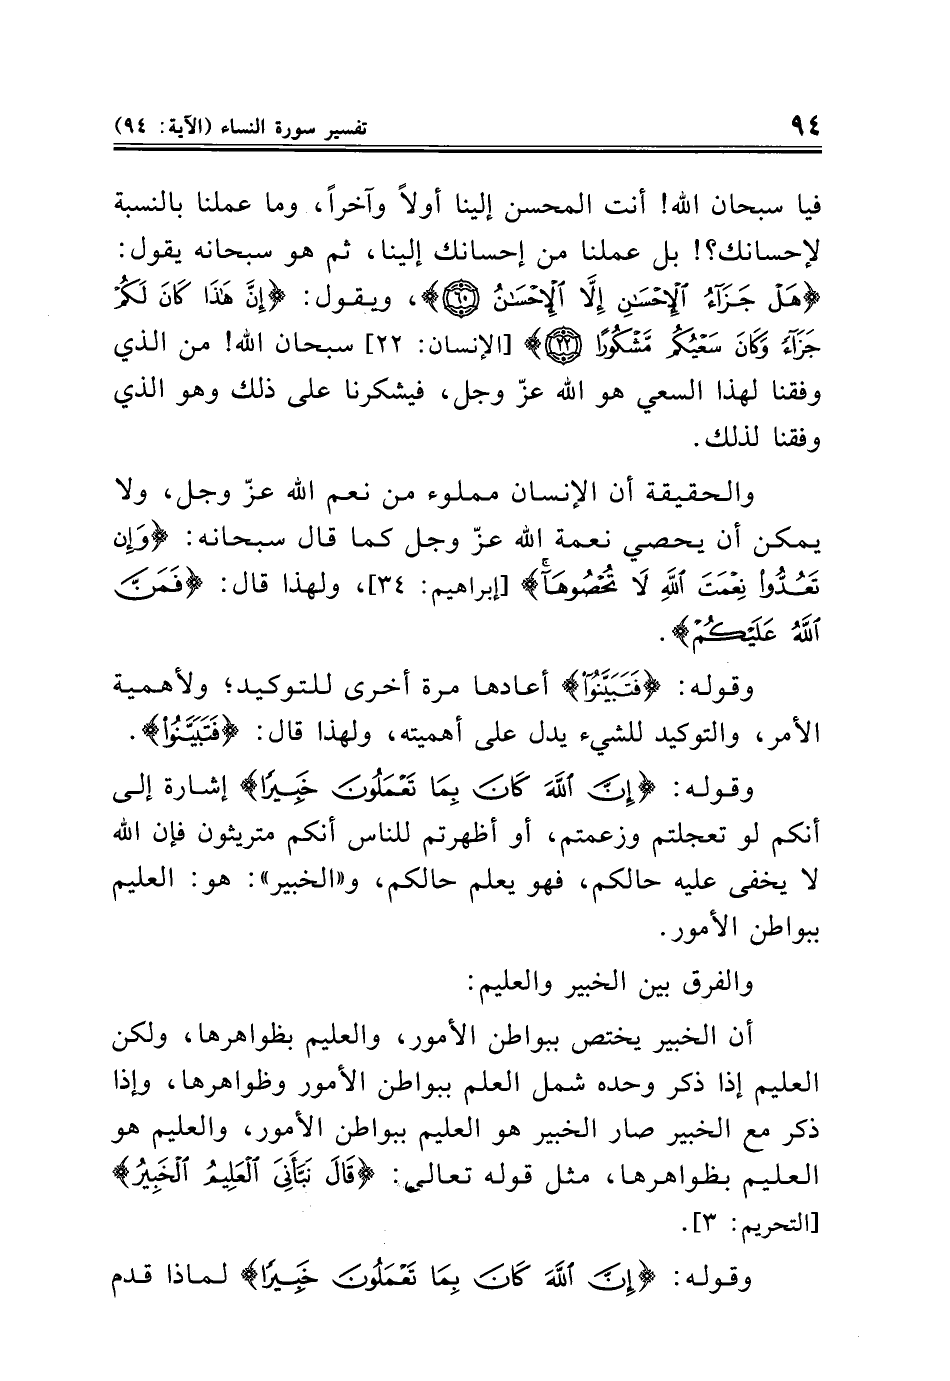 ٩٤
تفسير سورة النساء (الآية: ٩٤)
فيا سبحان الله! أنت المحسن إلينا أولاً وآخراً، وما عملنا بالنسبة
لإحسانك؟! بل عملنا من إحسانك إلينا، ثم هو سبحانه يقول:
﴿هَلْ جَزَآءُ ٱلْإِحْسَـٰنِ إِلَّا ٱلْإِحْسَـٰنُ ٦٠﴾، ويقول: ﴿إِنَّ هَـٰذَا كَانَ لَكُمْ
جَزَآءً وَكَانَ سَعْيُكُم مَّشْكُورًا ٢٢﴾ [الإنسان: ٢٢] سبحان الله! من الذي
وفقنا لهذا السعي هو الله عزّ وجل، فيشكرنا على ذلك وهو الذي
وفقنا لذلك.
والحقيقة أن الإنسان مملوء من نعم الله عزّ وجل، ولا
يمكن أن يحصي نعمة الله عزّ وجل كما قال سبحانه: ﴿وَإِن
تَعُدُّوا۟ نِعْمَتَ ٱللَّهِ لَا تُحْصُوهَآ﴾ [إبراهيم: ٣٤]، ولهذا قال: ﴿فَمَنَّ
ٱللَّهُ عَلَيْكُمْ﴾.
وقوله: ﴿فَتَبَيَّنُوٓا۟﴾ أعادها مرة أخرى للتوكيد؛ ولأهمية
الأمر، والتوكيد للشيء يدل على أهميته، ولهذا قال: ﴿فَتَبَيَّنُوٓا۟﴾.
وقوله: ﴿إِنَّ ٱللَّهَ كَانَ بِمَا تَعْمَلُونَ خَبِيرًا﴾ إشارة إلى
أنكم لو تعجلتم وزعمتم، أو أظهرتم للناس أنكم متريثون فإن الله
لا يخفى عليه حالكم، فهو يعلم حالكم، و«الخبير»: هو: العليم
ببواطن الأمور.
والفرق بين الخبير والعليم:
أن الخبير يختص ببواطن الأمور، والعليم بظواهرها، ولكن
العليم إذا ذكر وحده شمل العلم ببواطن الأمور وظواهرها، وإذا
ذكر مع الخبير صار الخبير هو العليم ببواطن الأمور، والعليم هو
العليم بظواهرها، مثل قوله تعالى: ﴿قَالَ نَبَّأَنِىَ ٱلْعَلِيمُ ٱلْخَبِيرُ﴾
[التحريم: ٣].
وقوله: ﴿إِنَّ ٱللَّهَ كَانَ بِمَا تَعْمَلُونَ خَبِيرًا﴾ لماذا قدم